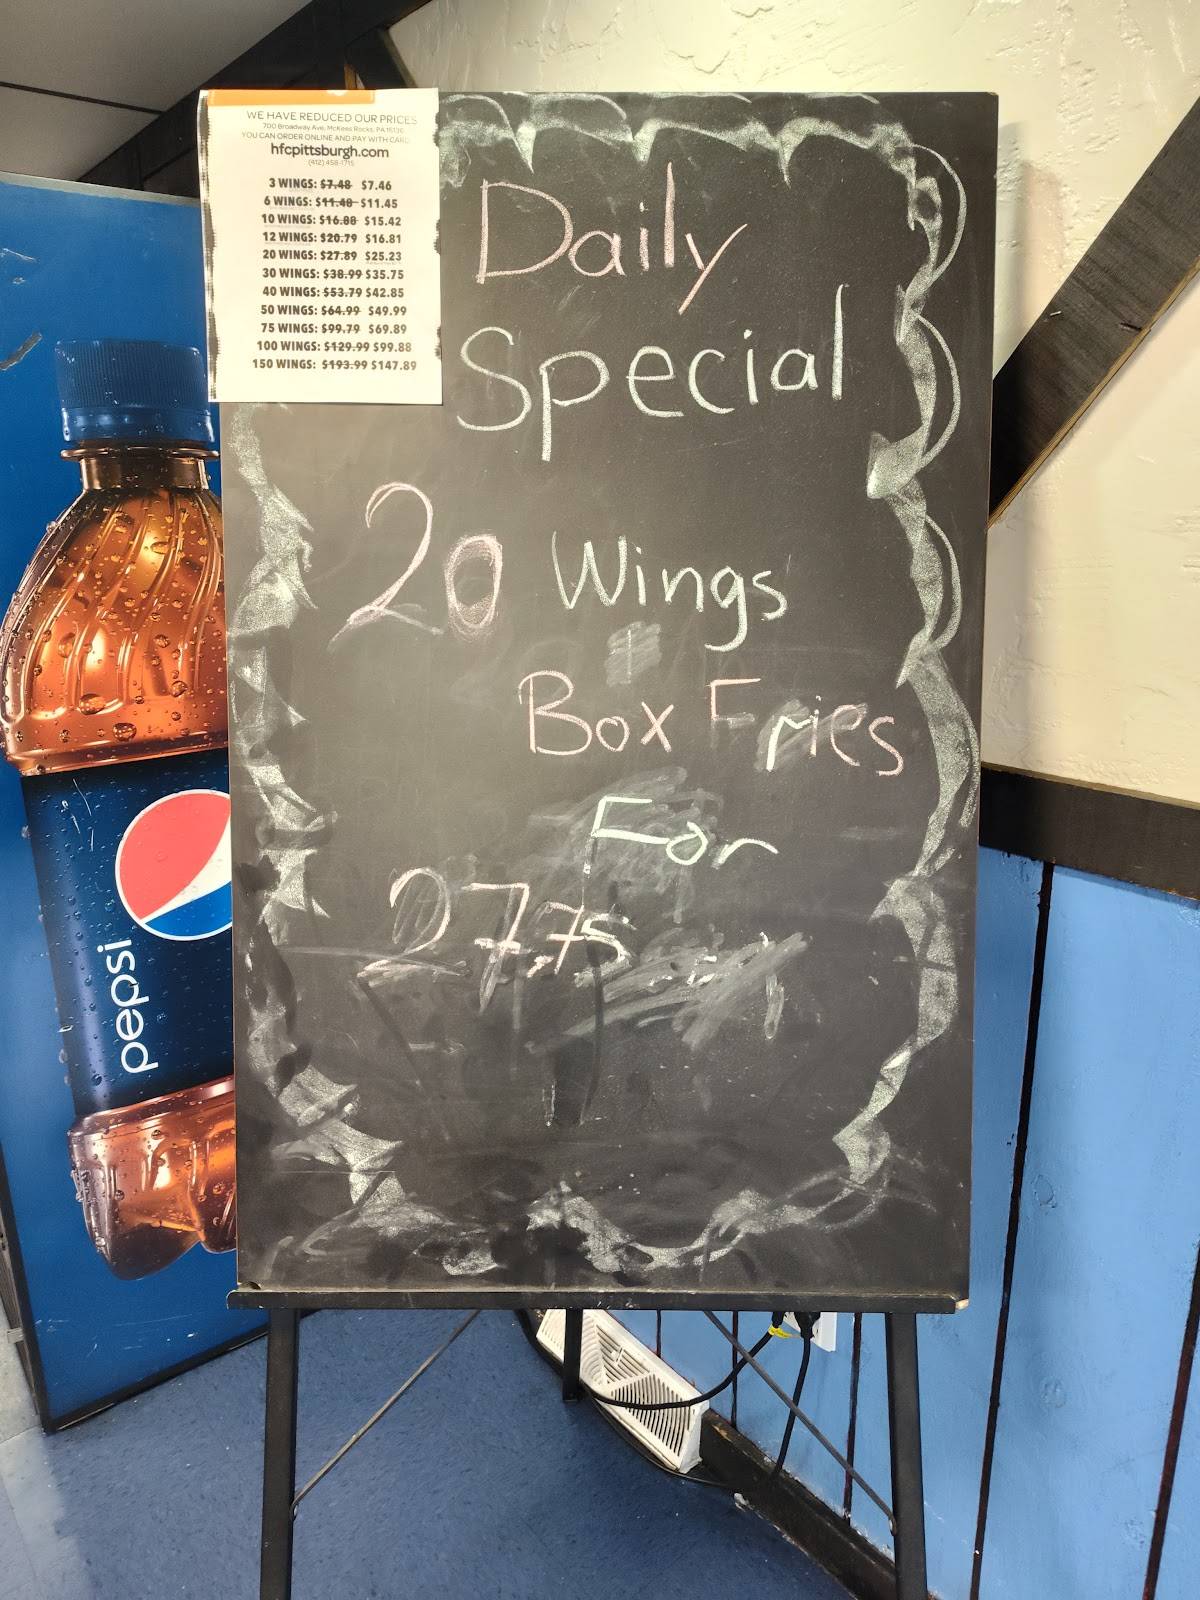 WE HAVE REDUCED OUR PRICES
700 Broadway Ave, McKees Rocks, PA 15136
YOU CAN ORDER ONLINE AND PAY WITH CARD
hfcpittsburgh.com
(412) 458-1715
3 WINGS: $7.48 $7.46
6 WINGS: $11.48 $11.45
10 WINGS: $16.88 $15.42
12 WINGS: $20.79 $16.81
20 WINGS: $27.89 $25.23
30 WINGS: $38.99 $35.75
40 WINGS: $53.79 $42.85
50 WINGS: $64.99 $49.99
75 WINGS: $99.79 $69.89
100 WINGS: $129.99 $99.88
150 WINGS: $193.99 $147.89
Daily
Special
20 Wings
+
Box Fries
For
27,75
pepsi